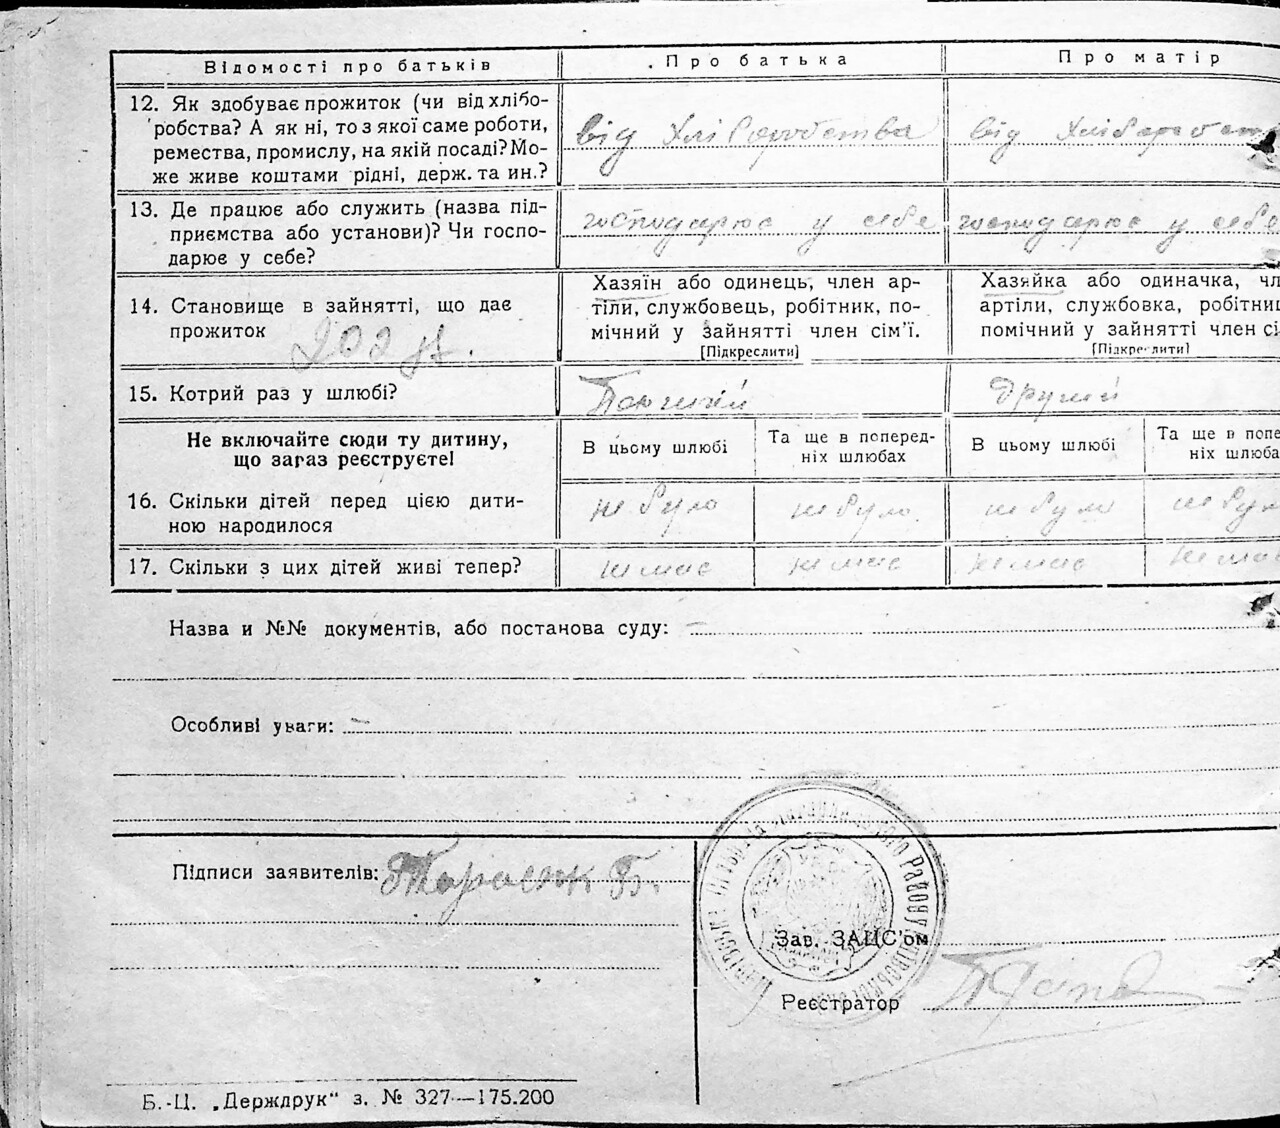 Відомості про батьків Про батька Про матір
12. Як здобуває прожиток (чи від хлібо-
робства? А як ні, то з якої саме роботи,
ремества, промислу, на якій посаді? Мо-
же живе коштами рідні, держ. та ин.?
від Хліборобства
від Хлібороб
13. Де працює або служить (назва під-
приємства або установи)? Чи госпо-
дарює у себе?
господарює у себе
господарює у себе
14. Становище в зайнятті, що дає
прожиток
Хазяїн або одинець, член ар-
тіли, службовець, робітник, по-
мічний у зайнятті член сім'ї.
[Підкреслити]
Хазяйка або одиначка, чл
артіли, службовка, робітни
помічний у зайнятті член сі
[Підкреслити]
15. Котрий раз у шлюбі?
другий
Не включайте сюди ту дитину,
що зараз реєструєте!
В цьому шлюбі
Та ще в поперед-
ніх шлюбах
В цьому шлюбі
Та ще в попе
ніх шлюба
16. Скільки дітей перед цією дити-
ною народилося
не було не було не було не бул
17. Скільки з цих дітей живі тепер?
немає немає немає немає
Назва и №№ документів, або постанова суду: —
Особливі уваги: —
Підписи заявителів: Тарасюк Б.
Зав. ЗАЦС'ом
Реєстратор
Б.-Ц. „Держдрук" з. № 327—175.200